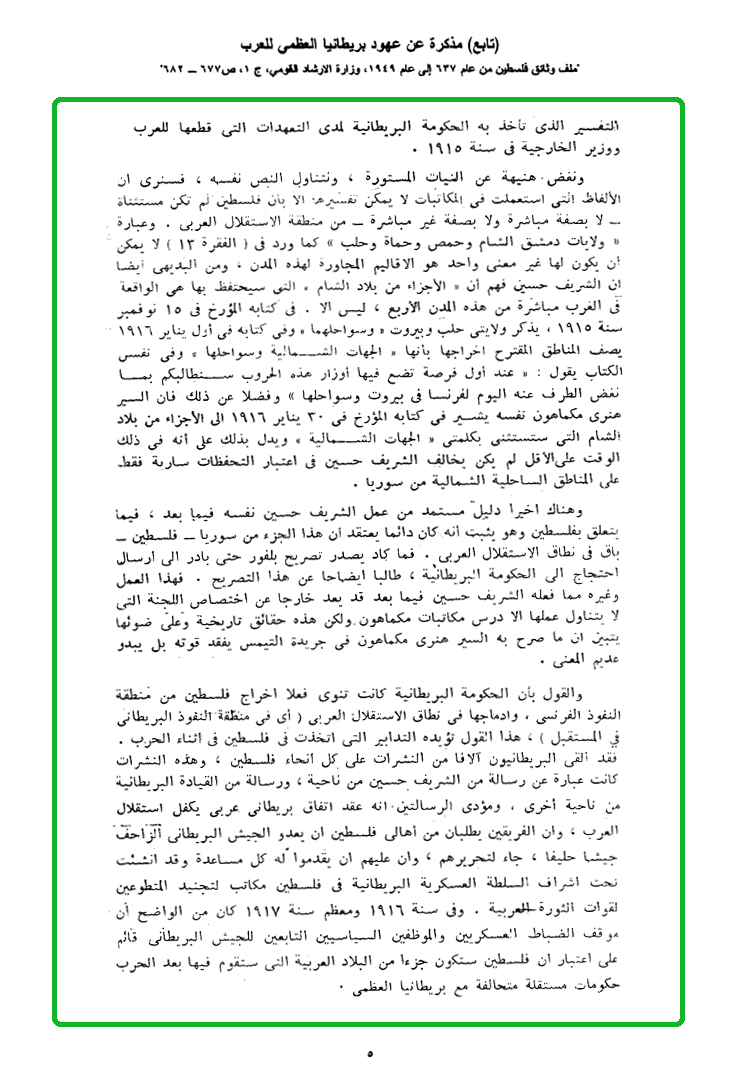 (تابع) مذكرة عن عهود بريطانيا العظمى للعرب
"ملف وثائق فلسطين من عام ٦٣٧ إلى عام ١٩٤٩، وزارة الارشاد القومي، ج ١، ص٦٧٧ – ٦٨٢"
التفسير الذى تأخذ به الحكومة البريطانية لمدى التعهدات التى قطعها للعرب
ووزير الخارجية فى سنة ١٩١٥ .
ونغض هنيهة عن النيات المستورة ، ونتناول النص نفسه ، فسنرى ان
الألفاظ التى استعملت فى المكاتبات لا يمكن تفسيرها الا بأن فلسطين لم تكن مستثناة
– لا بصفة مباشرة ولا بصفة غير مباشرة – من منطقة الاستقلال العربى . وعبارة
« ولايات دمشق الشام وحمص وحماة وحلب » كما ورد فى ( الفقرة ١٣ ) لا يمكن
أن يكون لها غير معنى واحد هو الاقاليم المجاورة لهذه المدن ، ومن البديهى أيضا
ان الشريف حسين فهم أن « الأجزاء من بلاد الشام » التى سيحتفظ بها هى الواقعة
فى الغرب مباشرة من هذه المدن الأربع ، ليس الا . فى كتابه المؤرخ فى ١٥ نوفمبر
سنة ١٩١٥ ، يذكر ولايتى حلب وبيروت « وسواحلهما » وفى كتابه فى أول يناير ١٩١٦
يصف المناطق المقترح اخراجها بأنها « الجهات الشـــمالية وسواحلها » وفى نفس
الكتاب يقول : « عند أول فرصة تضع فيها أوزار هذه الحروب ســنطالبكم بمــا
نغض الطرف عنه اليوم لفرنسا فى بيروت وسواحلها » وفضلا عن ذلك فان السير
هنرى مكماهون نفسه يشــير فى كتابه المؤرخ فى ٣٠ يناير ١٩١٦ الى الأجزاء من بلاد
الشام التى ستستثنى بكلمتى « الجهات الشـــمالية » ويدل بذلك على أنه فى ذلك
الوقت على الأقل لم يكن يخالف الشريف حسين فى اعتبار التحفظات سارية فقط
على المناطق الساحلية الشمالية من سوريا .
وهناك اخيرا دليل مستمد من عمل الشريف حسين نفسه فيما بعد ، فيما
يتعلق بفلسطين وهو يثبت أنه كان دائما يعتقد ان هذا الجزء من سوريا – فلسطين –
باق فى نطاق الاستقلال العربى . فما كاد يصدر تصريح بلفور حتى بادر الى ارسال
احتجاج الى الحكومة البريطانية ، طالبا ايضاحا عن هذا التصريح . فهذا العمل
وغيره مما فعله الشريف حسين فيما بعد قد يعد خارجا عن اختصاص اللجنة التى
لا يتناول عملها الا درس مكاتبات مكماهون ولكن هذه حقائق تاريخية وعلى ضوئها
يتبين ان ما صرح به السير هنرى مكماهون فى جريدة التيمس يفقد قوته بل يبدو
عديم المعنى .
والقول بأن الحكومة البريطانية كانت تنوى فعلا اخراج فلسطين من منطقة
النفوذ الفرنسى ، وادماجها فى نطاق الاستقلال العربى ( أى فى منطقة النفوذ البريطانى
في المستقبل ) ، هذا القول تؤيده التدابير التى اتخذت فى فلسطين فى اثناء الحرب .
فقد القى البريطانيون آلافا من النشرات على كل انحاء فلسطين ، وهذه النشرات
كانت عبارة عن رسالة من الشريف حسين من ناحية ، ورسالة من القيادة البريطانية
من ناحية أخرى ، ومؤدى الرسالتين انه عقد اتفاق بريطانى عربى يكفل استقلال
العرب ، وان الفريقين يطلبان من أهالى فلسطين ان يعدو الجيش البريطانى الزاحف
جيشا حليفا ، جاء لتحريرهم ، وان عليهم ان يقدموا له كل مساعدة وقد انشئت
تحت اشراف السلطة العسكرية البريطانية فى فلسطين مكاتب لتجنيد المتطوعين
لقوات الثورة العربية . وفى سنة ١٩١٦ ومعظم سنة ١٩١٧ كان من الواضح أن
موقف الضباط العسكريين والموظفين السياسيين التابعين للجيش البريطانى قائم
على اعتبار ان فلسطين ستكون جزءا من البلاد العربية التى ستقوم فيها بعد الحرب
حكومات مستقلة متحالفة مع بريطانيا العظمى .
٥